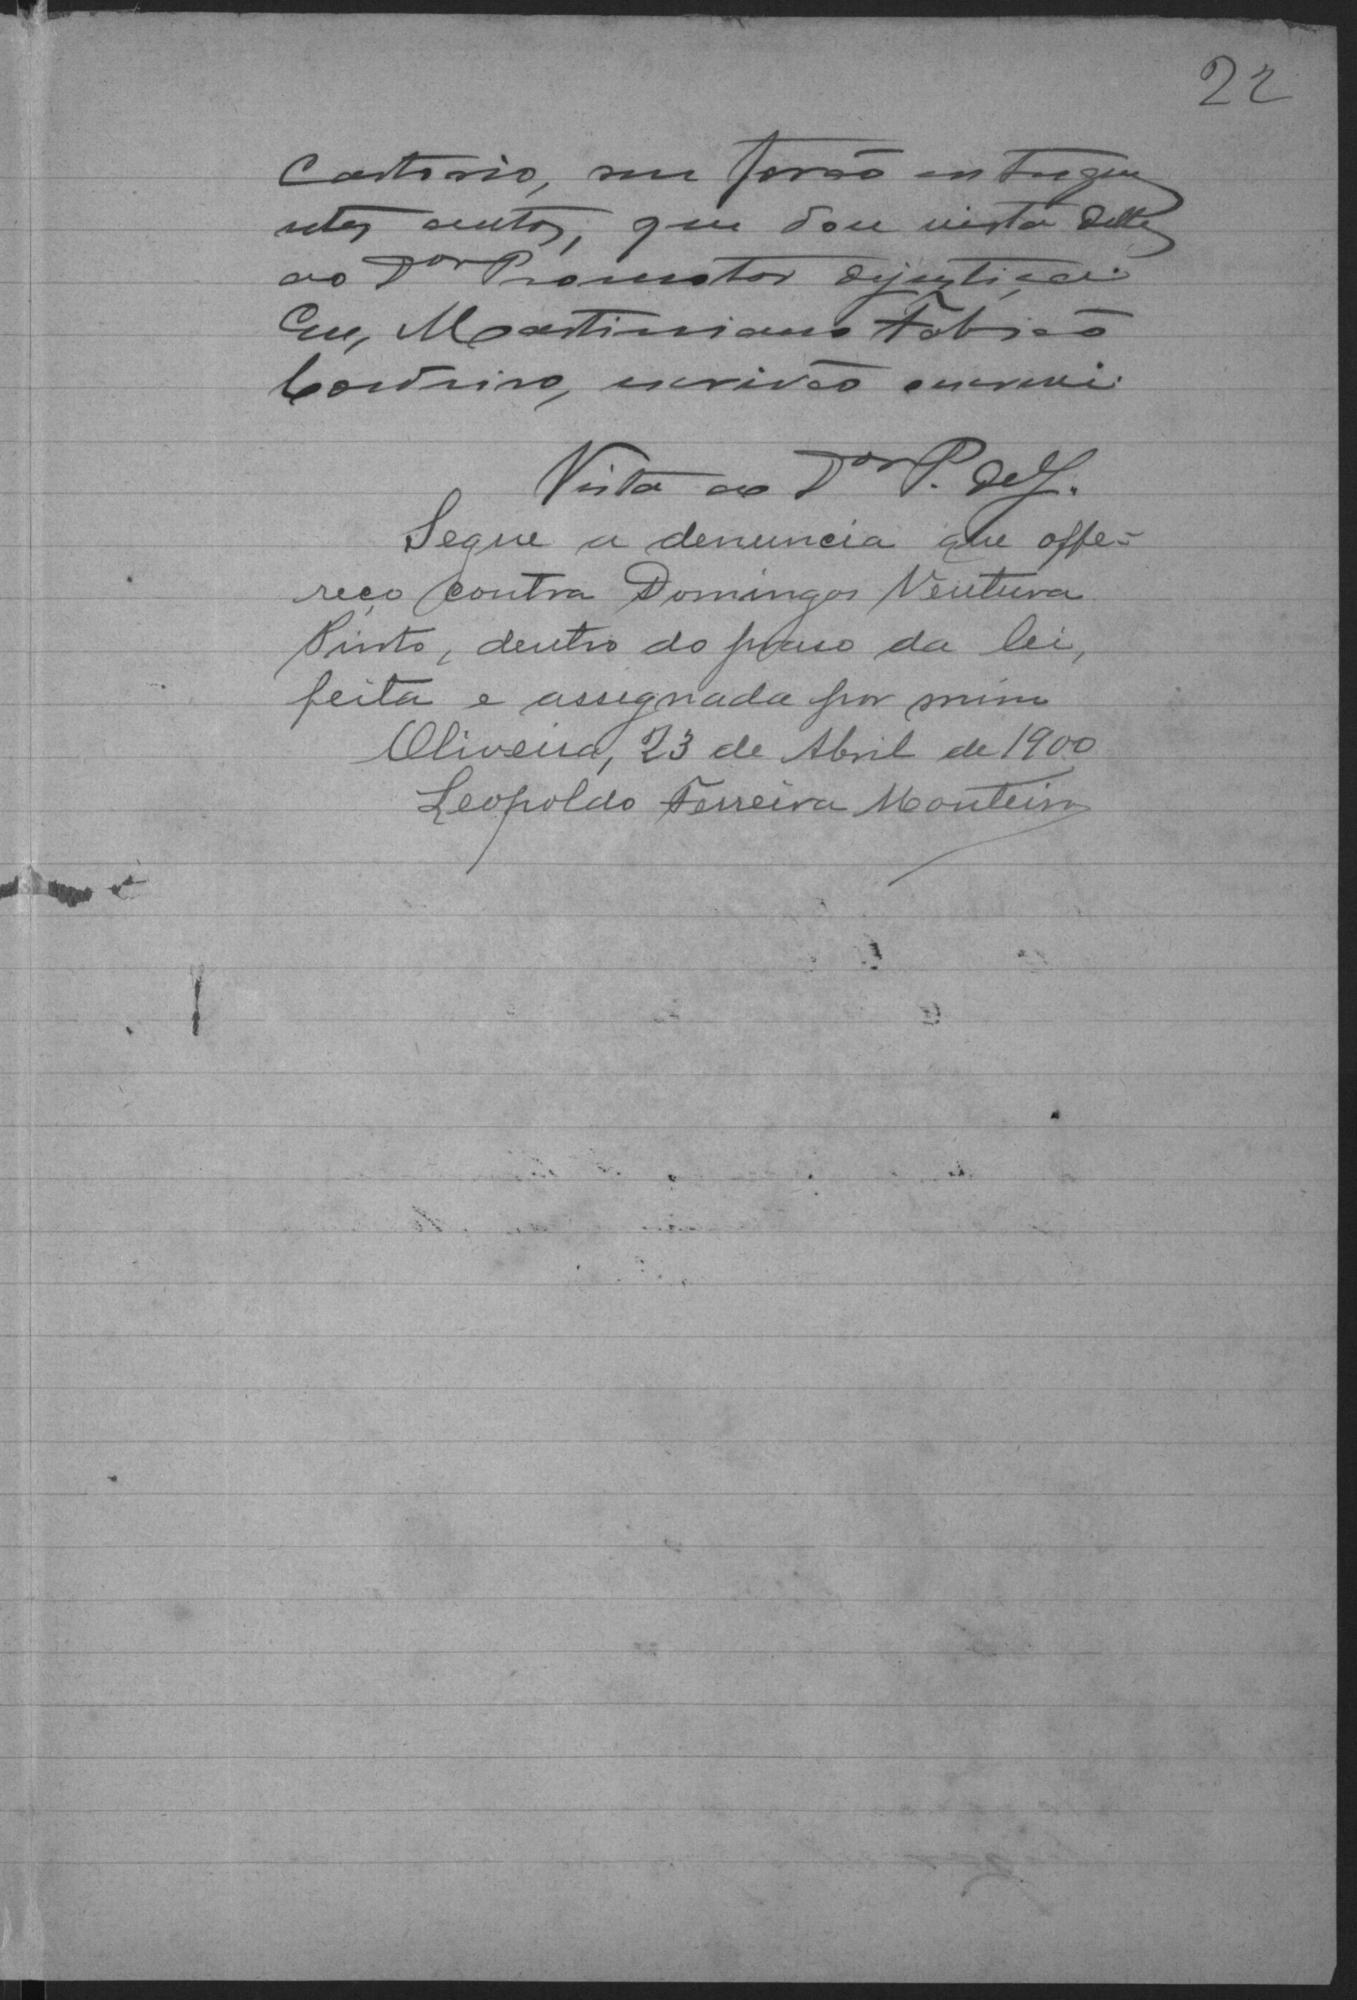 22
Cartorio, me forão entregues
estes autos, que dou vista delles
ao Dor Promotor dejustiça.
Eu, Martiniano Fabião
Cordeiro, escrivão escrevi.
Vista ao Dor P. deJ.
Segue a denuncia que offe-
reço contra Domingos Ventura
Pinto, dentro do praso da lei,
feita e assignada por mim
Oliveira, 23 de Abril de 1900
Leopoldo Ferreira Monteiro